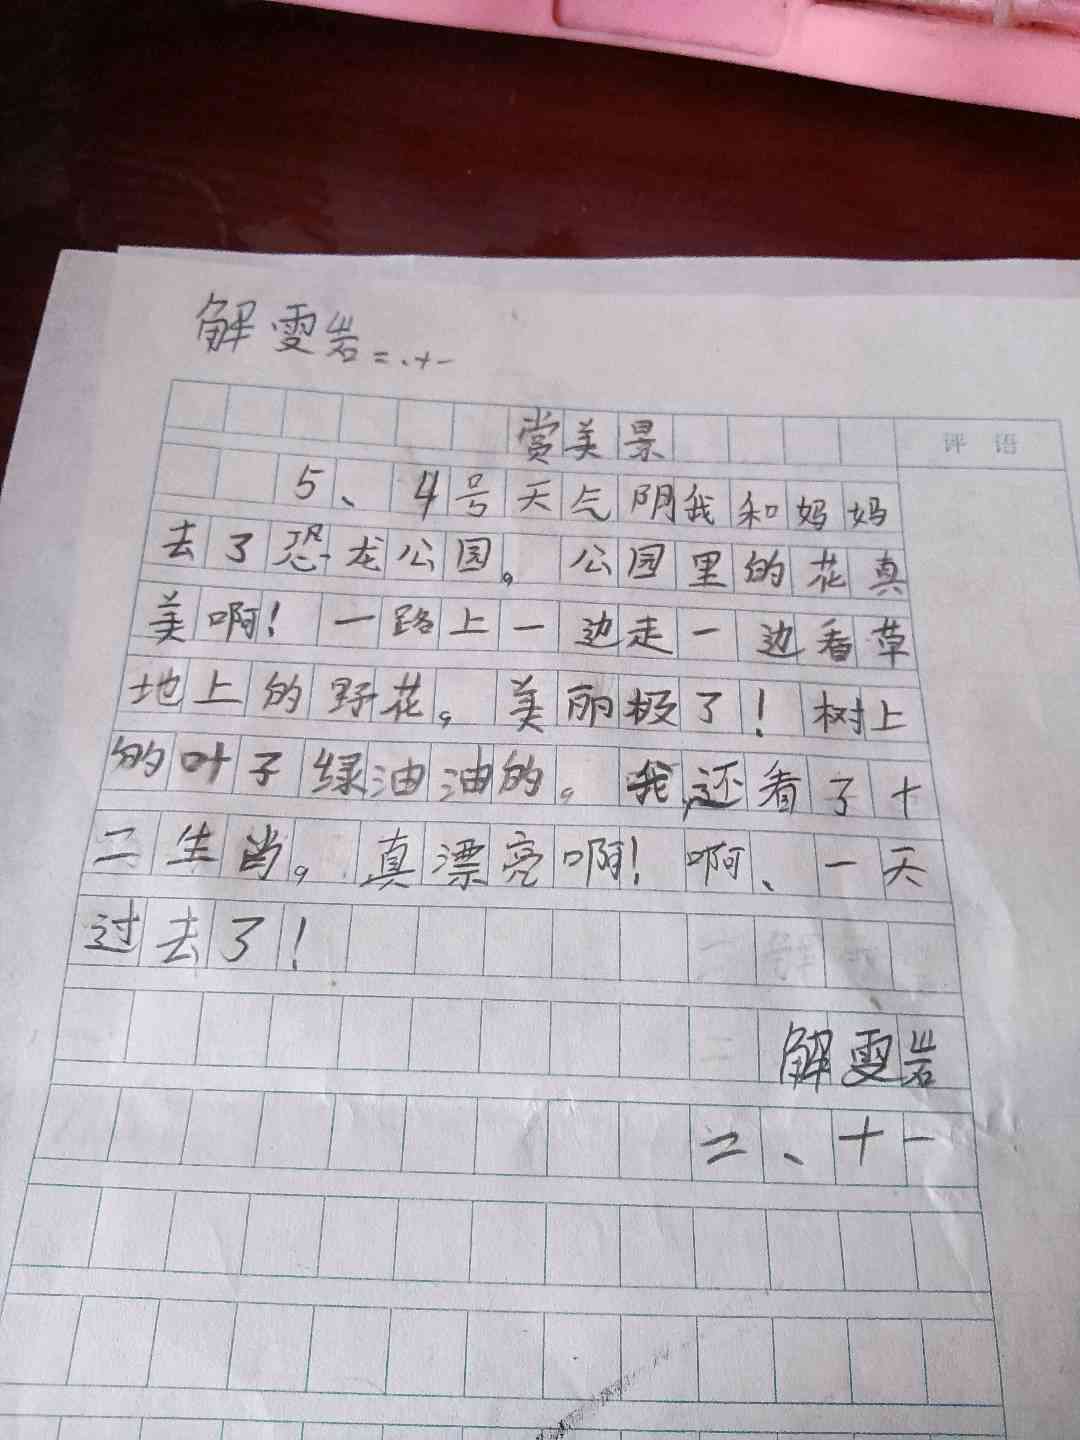 解雯岩二、十一
赏美景
评语
5、4号天气阴我和妈妈
去了恐龙公园。公园里的花真
美啊!一路上一边走一边看草
地上的野花。美丽极了!树上
的叶子绿油油的。我还看了十
二生肖。真漂亮啊!啊、一天
过去了!
解雯岩
二、十一